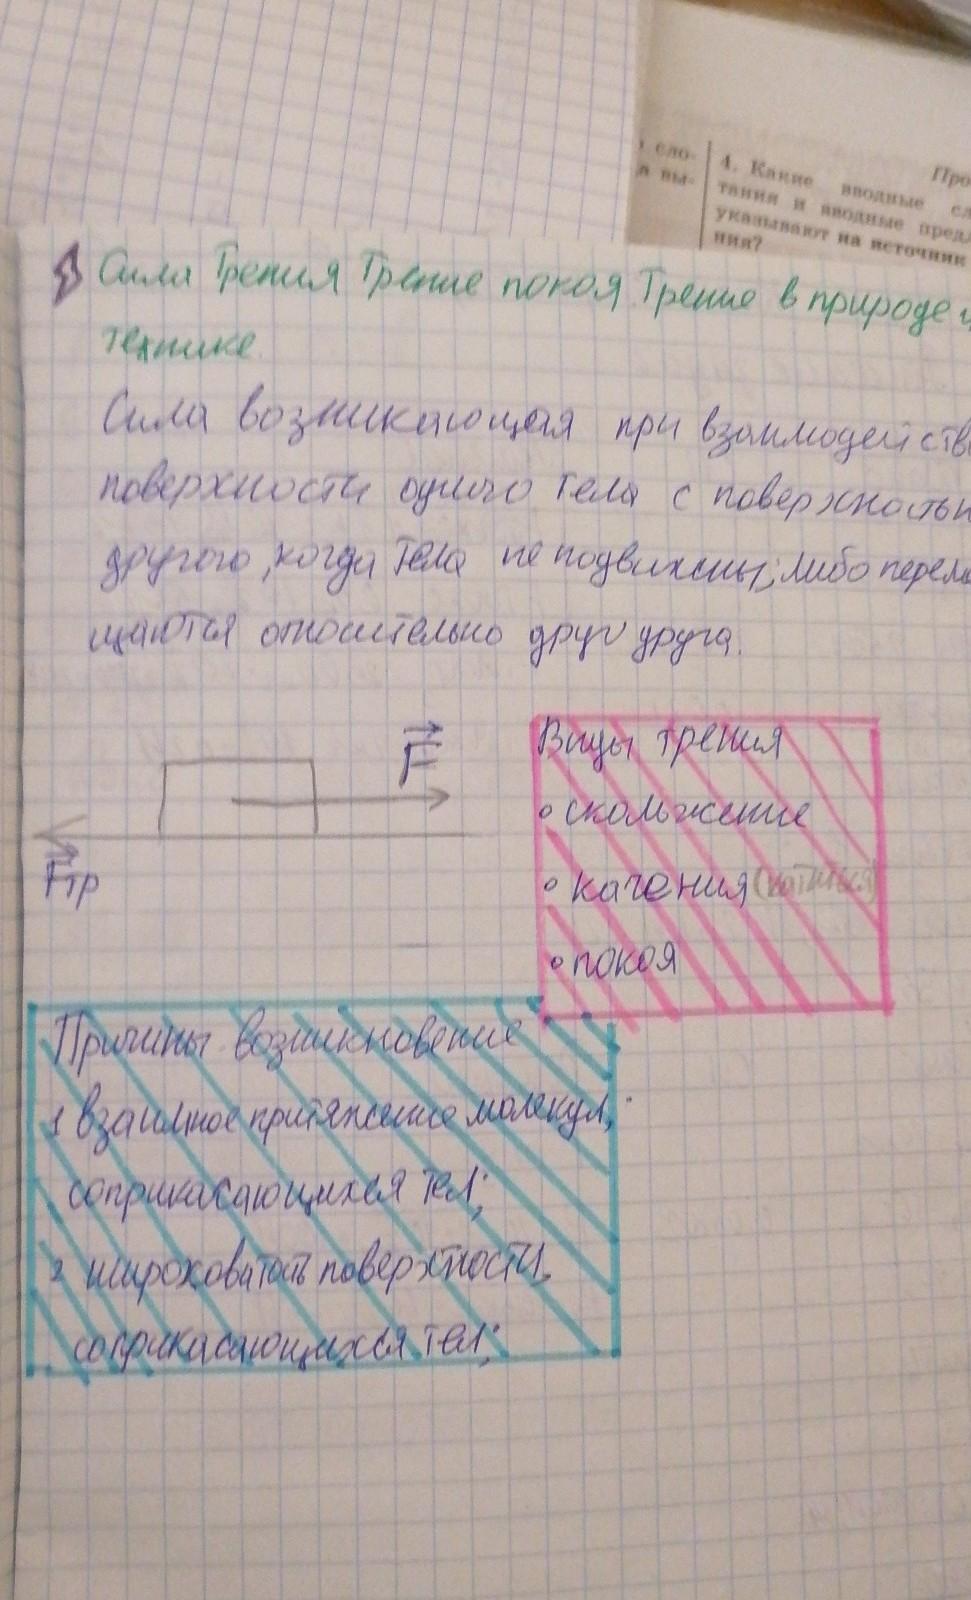 сло-
вы-
Про
4. Какие вводные сл
тания и вводные пред
указывают на источник
ния?
Сила Трения Трение покоя. Трение в природе и
технике.
Сила возникающая при взаимодейств
поверхности одного тела с поверхностью
другого, когда тела не подвижны, либо переме
щаются относительно друг друга.
F
Fтр
Виды трения
скольжение
качения (катиться)
покоя
Причины возникновение
1 взаимное притяжение молекул,
соприкасающихся тел;
2 широховатость поверхтности,
соприкасающихся тел;